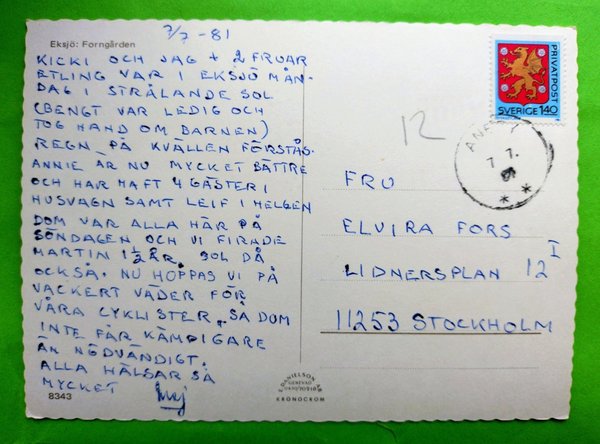 7/7-81
Eksjö: Forngården
KICKI OCH JAG + 2 FRUAR
ETLING VAR I EKSJÖ MÅN-
DAG I STRÅLANDE SOL
(BENGT VAR LEDIG OCH
TOG HAND OM BARNEN)
REGN PÅ KVÄLLEN FÖRSTÅS.
ANNIE ÄR NU MYCKET BÄTTRE
OCH HAR HAFT 4 GÄSTER I
HUSVAGN SAMT LEIF I HELGEN
DOM VAR ALLA HÄR PÅ
SÖNDAGEN OCH VI FIRADE
MARTIN 1 1/2 ÅR. SOL DÅ
OCKSÅ. NU HOPPAS VI PÅ
VACKERT VÄDER FÖR
VÅRA CYKLISTER, SÅ DOM
INTE FÅR KÄMPIGARE
ÄN NÖDVÄNDIGT.
ALLA HÄLSAR SÅ
MYCKET
8343
PRIVATPOST
SVERIGE 140
12
7.7.
FRU
ELVIRA FORS
LIDNERSPLAN 12 I
11253 STOCKHOLM
KRONOCROM